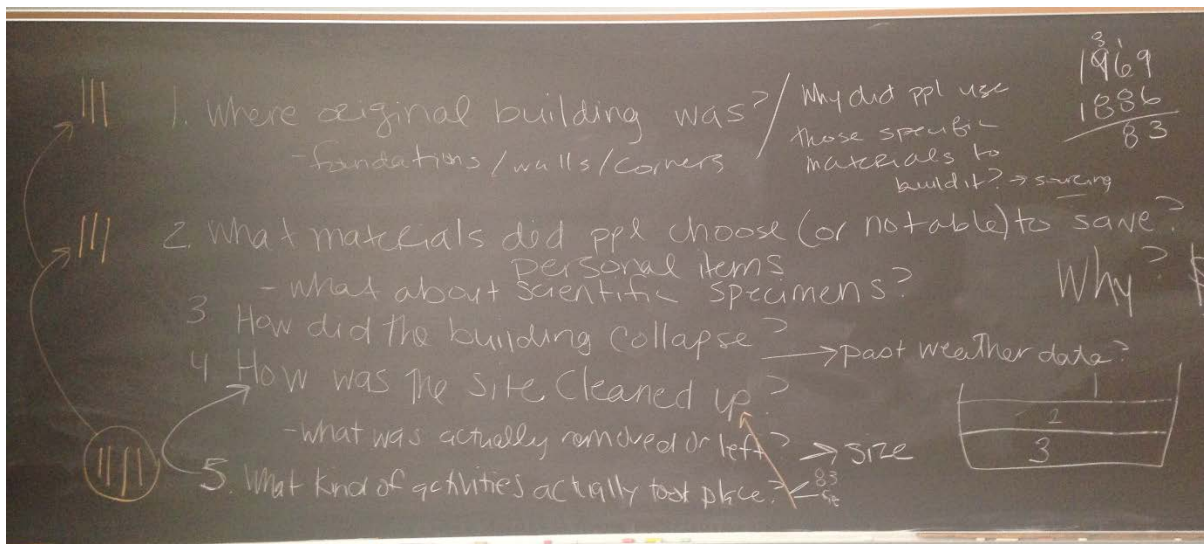 1. Where original building was?
-foundations/walls/corners
/ Why did ppl use
those specific
materials to
build it? → sourcing
1969
1886
83
2. What materials did ppl choose (or not able) to save?
personal items
-what about scientific specimens?
Why?
3 How did the building collapse?
→ past weather data?
4 How was the site cleaned up?
-what was actually removed or left? → size
5. What kind of activities actually took place?
83
1
2
3